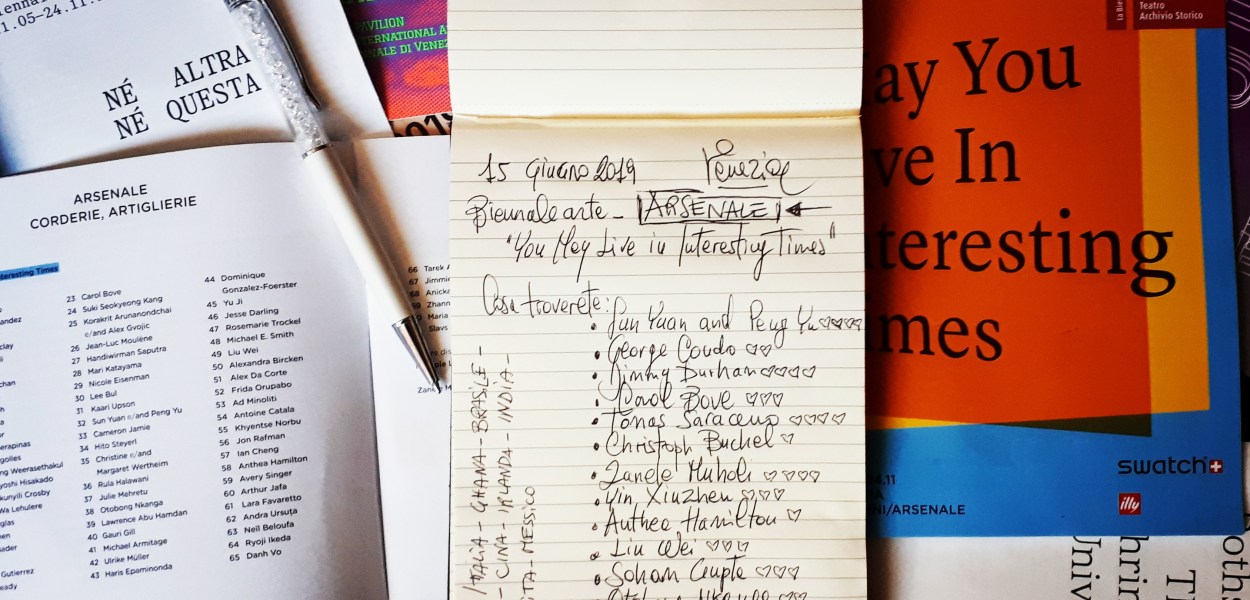 1.05–24.11
NÉ ALTRA
NÉ QUESTA
PAVILION
INTERNATIONAL A
NALE DI VENEZ
ARSENALE
CORDERIE, ARTIGLIERIE
teresting Times
23 Carol Bove
24 Suki Seokyeong Kang
25 Korakrit Arunanondchai
e/and Alex Gvojic
26 Jean-Luc Moulène
27 Handiwirman Saputra
28 Mari Katayama
29 Nicole Eisenman
30 Lee Bul
31 Kaari Upson
32 Sun Yuan e/and Peng Yu
33 Cameron Jamie
34 Hito Steyerl
35 Christine e/and
Margaret Wertheim
36 Rula Halawani
37 Julie Mehretu
38 Otobong Nkanga
39 Lawrence Abu Hamdan
40 Gauri Gill
41 Michael Armitage
42 Ulrike Müller
43 Haris Epaminonda
44 Dominique
Gonzalez-Foerster
45 Yu Ji
46 Jesse Darling
47 Rosemarie Trockel
48 Michael E. Smith
49 Liu Wei
50 Alexandra Bircken
51 Alex Da Corte
52 Frida Orupabo
53 Ad Minoliti
54 Antoine Catala
55 Khyentse Norbu
56 Jon Rafman
57 Ian Cheng
58 Anthea Hamilton
59 Avery Singer
60 Arthur Jafa
61 Lara Favaretto
62 Andra Ursuța
63 Neïl Beloufa
64 Ryoji Ikeda
65 Danh Vo
66 Tarek A
67 Jimmi
68 Anicka
Zhann
Maria
Slavs
15 Giugno 2019 Venezia
Biennale arte – ARSENALE
"You May Live in Interesting Times"
Cosa troverete:
Sun Yuan and Peng Yu ♡♡♡♡
George Condo ♡♡
Jimmy Durham ♡♡♡♡
Carol Bove ♡♡♡
Tomas Saraceno ♡♡♡♡
Christoph Buchel ♡
Zanele Muholi ♡♡♡♡
Yin Xiuzhen ♡♡♡
Anthea Hamilton ♡
Liu Wei ♡♡♡
Soham Gupta ♡♡♡
ITALIA - GHANA - BRASILE -
- CINA - IRLANDA - INDIA -
MESSICO
Teatro
Archivio Storico
ay You
ve In
teresting
mes
swatch
illy
NI/ARSENALE